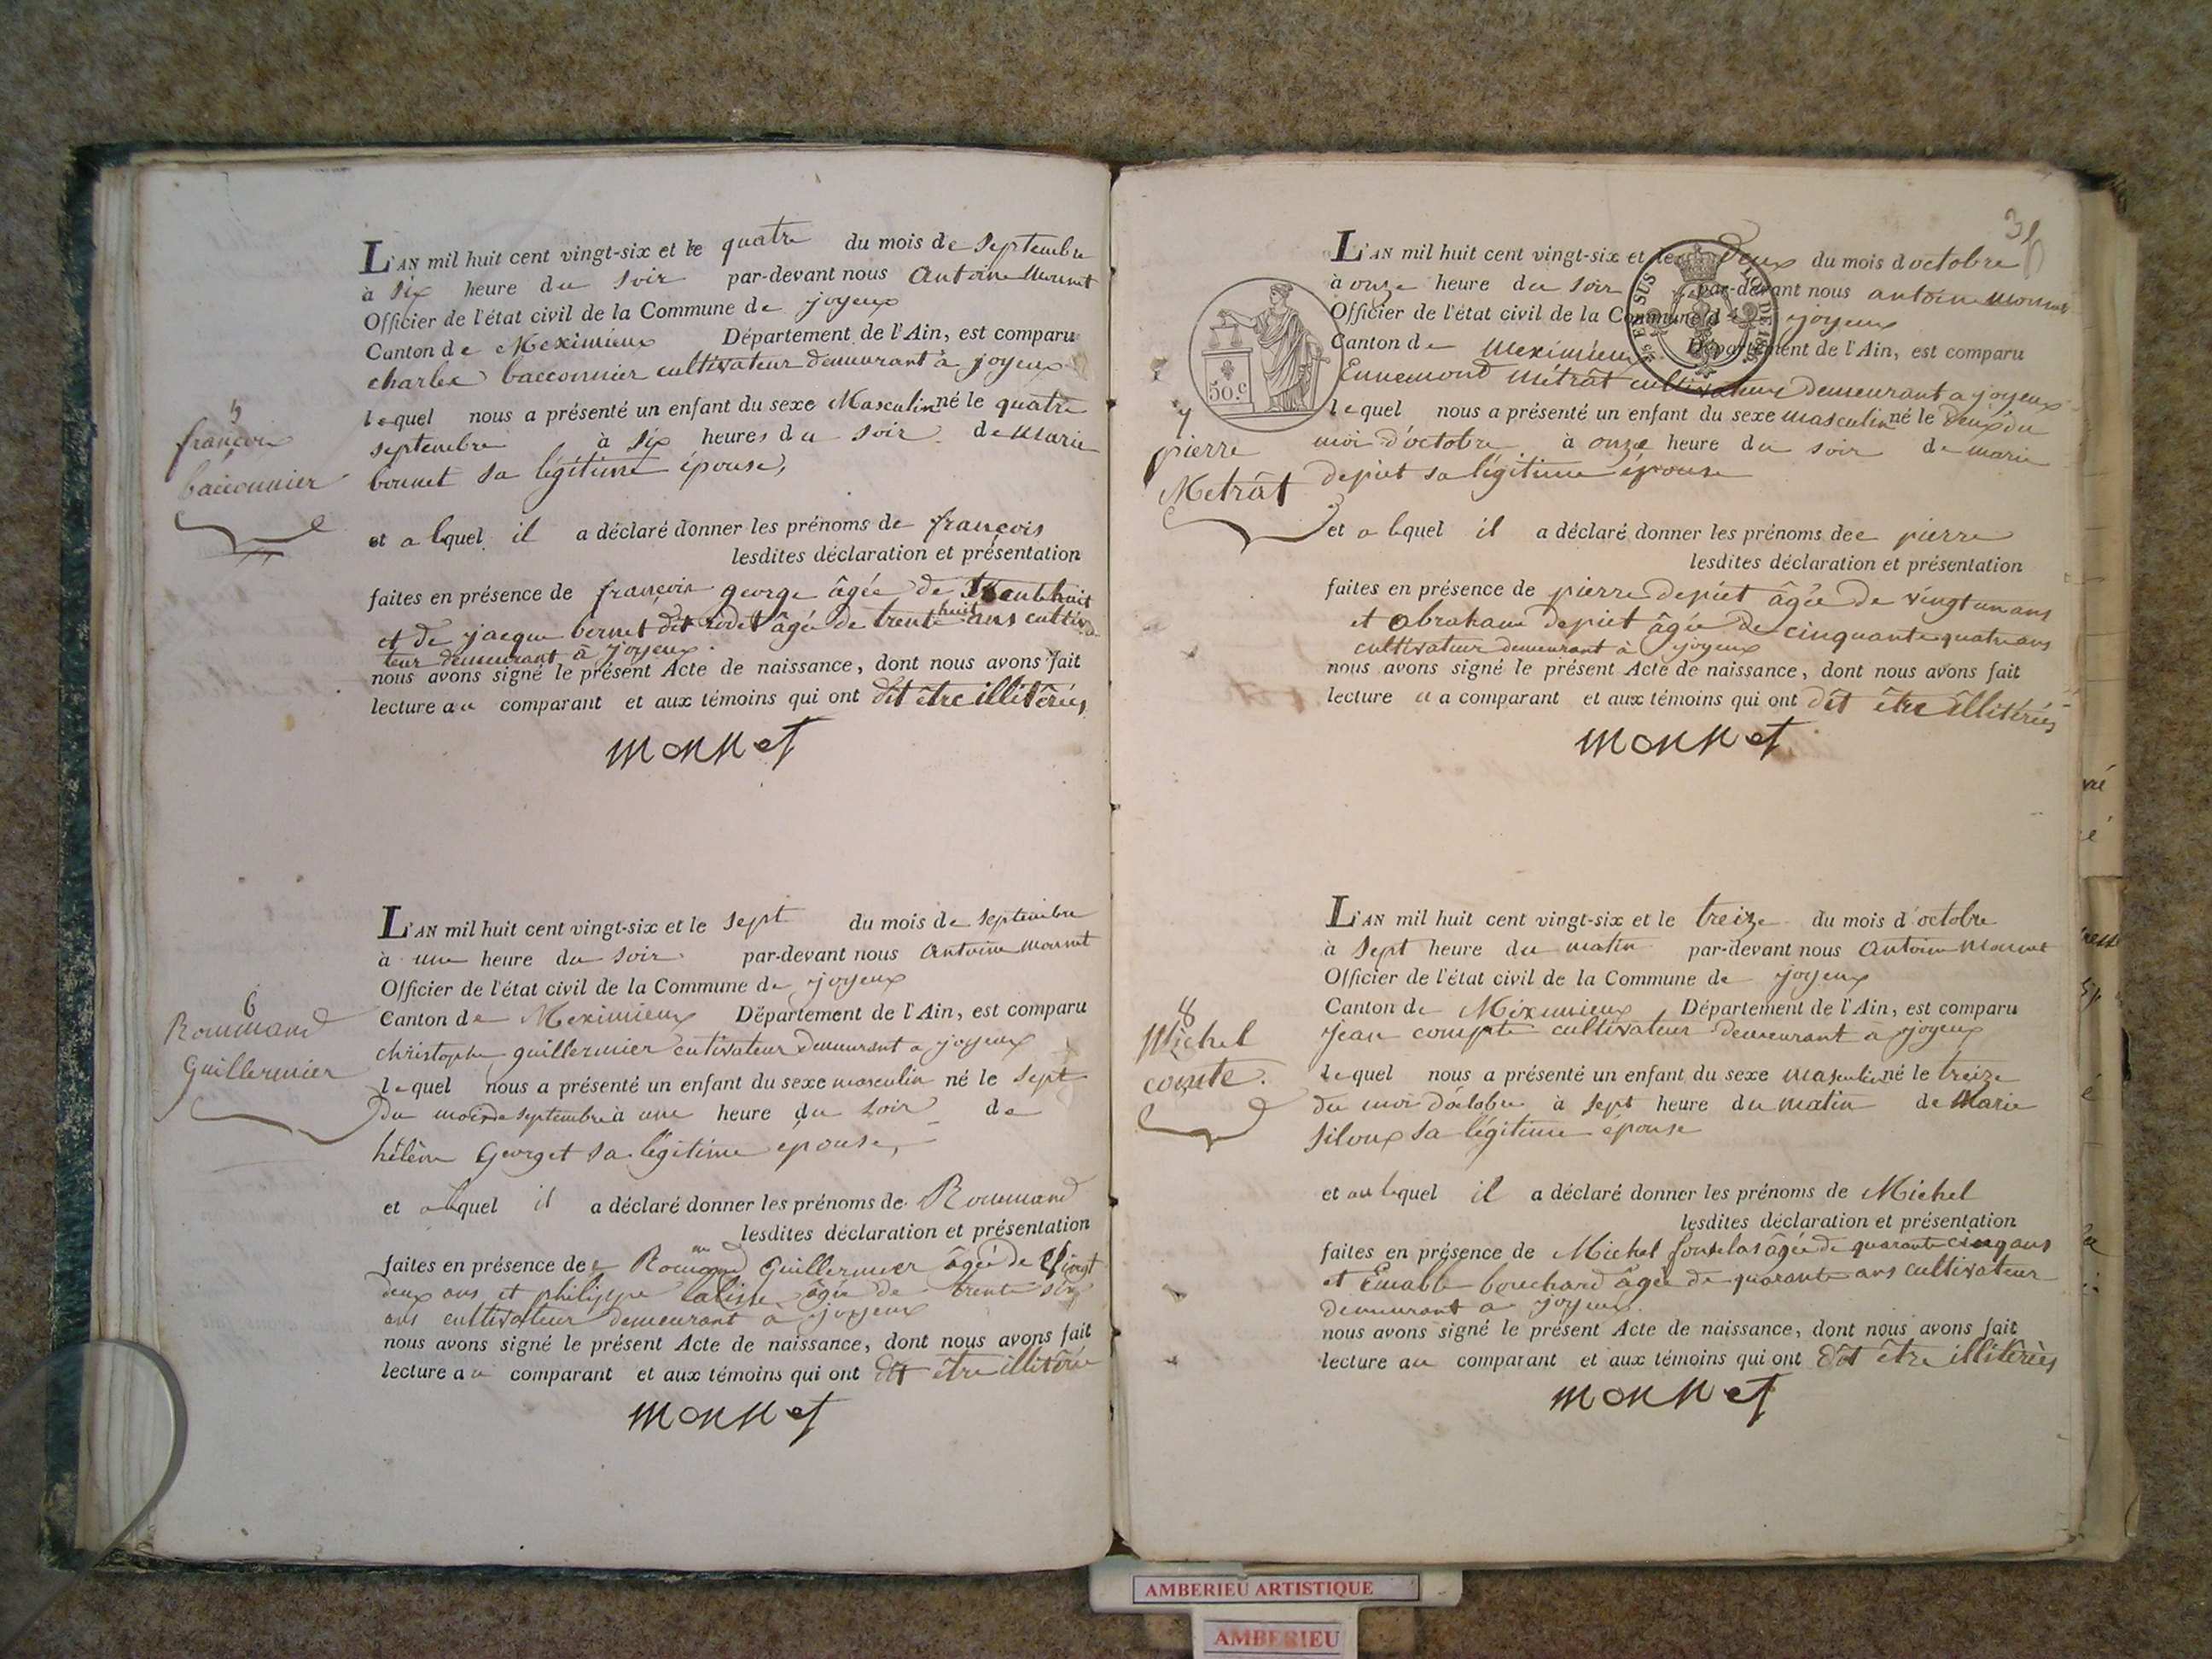 L'AN mil huit cent vingt-six et le quatre du mois de Septembre
à six heure du soir par-devant nous Antoine Monnet
Officier de l'état civil de la Commune de joyeux
Canton de Meximieux Département de l'Ain, est comparu
charles bacconnier cultivateur demeurant à joyeux
lequel nous a présenté un enfant du sexe Masculin né le quatre
septembre à six heures du soir de Marie
bonnet sa légitime épouse,
5
françois
bacconnier
et a lequel il a déclaré donner les prénoms de françois
lesdites déclaration et présentation
faites en présence de françois george âgée de trente huit
et de jacque bernet dit rodet âgé de trente huit ans cultiva
teur demeurant à joyeux
nous avons signé le présent Acte de naissance, dont nous avons fait
lecture au comparant et aux témoins qui ont dit être illitérés
Monnet
L'AN mil huit cent vingt-six et le sept du mois de septembre
à une heure du soir par-devant nous Antoine monnet
Officier de l'état civil de la Commune de joyeux
Canton de Meximieux Département de l'Ain, est comparu
christophe guillermier cutivateur demeurant a joyeux
lequel nous a présenté un enfant du sexe masculin né le sept
du mois de septembre à une heure du soir de
hélène Georget sa légitime epouse,
6
Roumand
Guillermier
et a lequel il a déclaré donner les prénoms de Roumand
lesdites déclaration et présentation
faites en présence de Roumand Guillermier âgé de vingt
deux ans et philippe âgée de trente six
ans cultivateur demeurant a joyeux
nous avons signé le présent Acte de naissance, dont nous avons fait
lecture au comparant et aux témoins qui ont dit être illitérée
Monnet
L'AN mil huit cent vingt-six et le deux du mois d octobre
à onze heure du soir par-devant nous antoine monnet
Officier de l'état civil de la Commune de joyeux
Canton de Meximieux Département de l'Ain, est comparu
Ennemond Métrât cultivateur demeurant a joyeux
lequel nous a présenté un enfant du sexe masculin né le deux du
moi d'octobre à onze heure du soir de marie
depiet sa légitime épouse
50.c
7
pierre
Metrât
et a lequel il a déclaré donner les prénoms dee pierre
lesdites déclaration et présentation
faites en présence de pierre depiet âgée de vingt un ans
et abraham depiet âgée de cinquante quatre ans
cultivateur demeurant à joyeux
nous avons signé le présent Acte de naissance, dont nous avons fait
lecture au comparant et aux témoins qui ont dit être illitérées
Monnet
L'AN mil huit cent vingt-six et le treize du mois d'octobre
à sept heure du matin par-devant nous Antoine Monnet
Officier de l'état civil de la Commune de joyeux
Canton de Méximieux Département de l'Ain, est comparu
Jean compte cultivateur demeurant à joyeux
lequel nous a présenté un enfant du sexe masculin né le treize
du moi d'octobre à sept heure du matin de Marie
siloux sa légitime épouse
8
Michel
comte.
et au lequel il a déclaré donner les prénoms de Michel
lesdites déclaration et présentation
faites en présence de Michel âgée de quarante cinq ans
et Emable bouchard âgée de quarante ans cultivateur
demeurant a joyeux.
nous avons signé le présent Acte de naissance, dont nous avons fait
lecture au comparant et aux témoins qui ont dit être illitérées
Monnet
AMBERIEU ARTISTIQUE
AMBERIEU